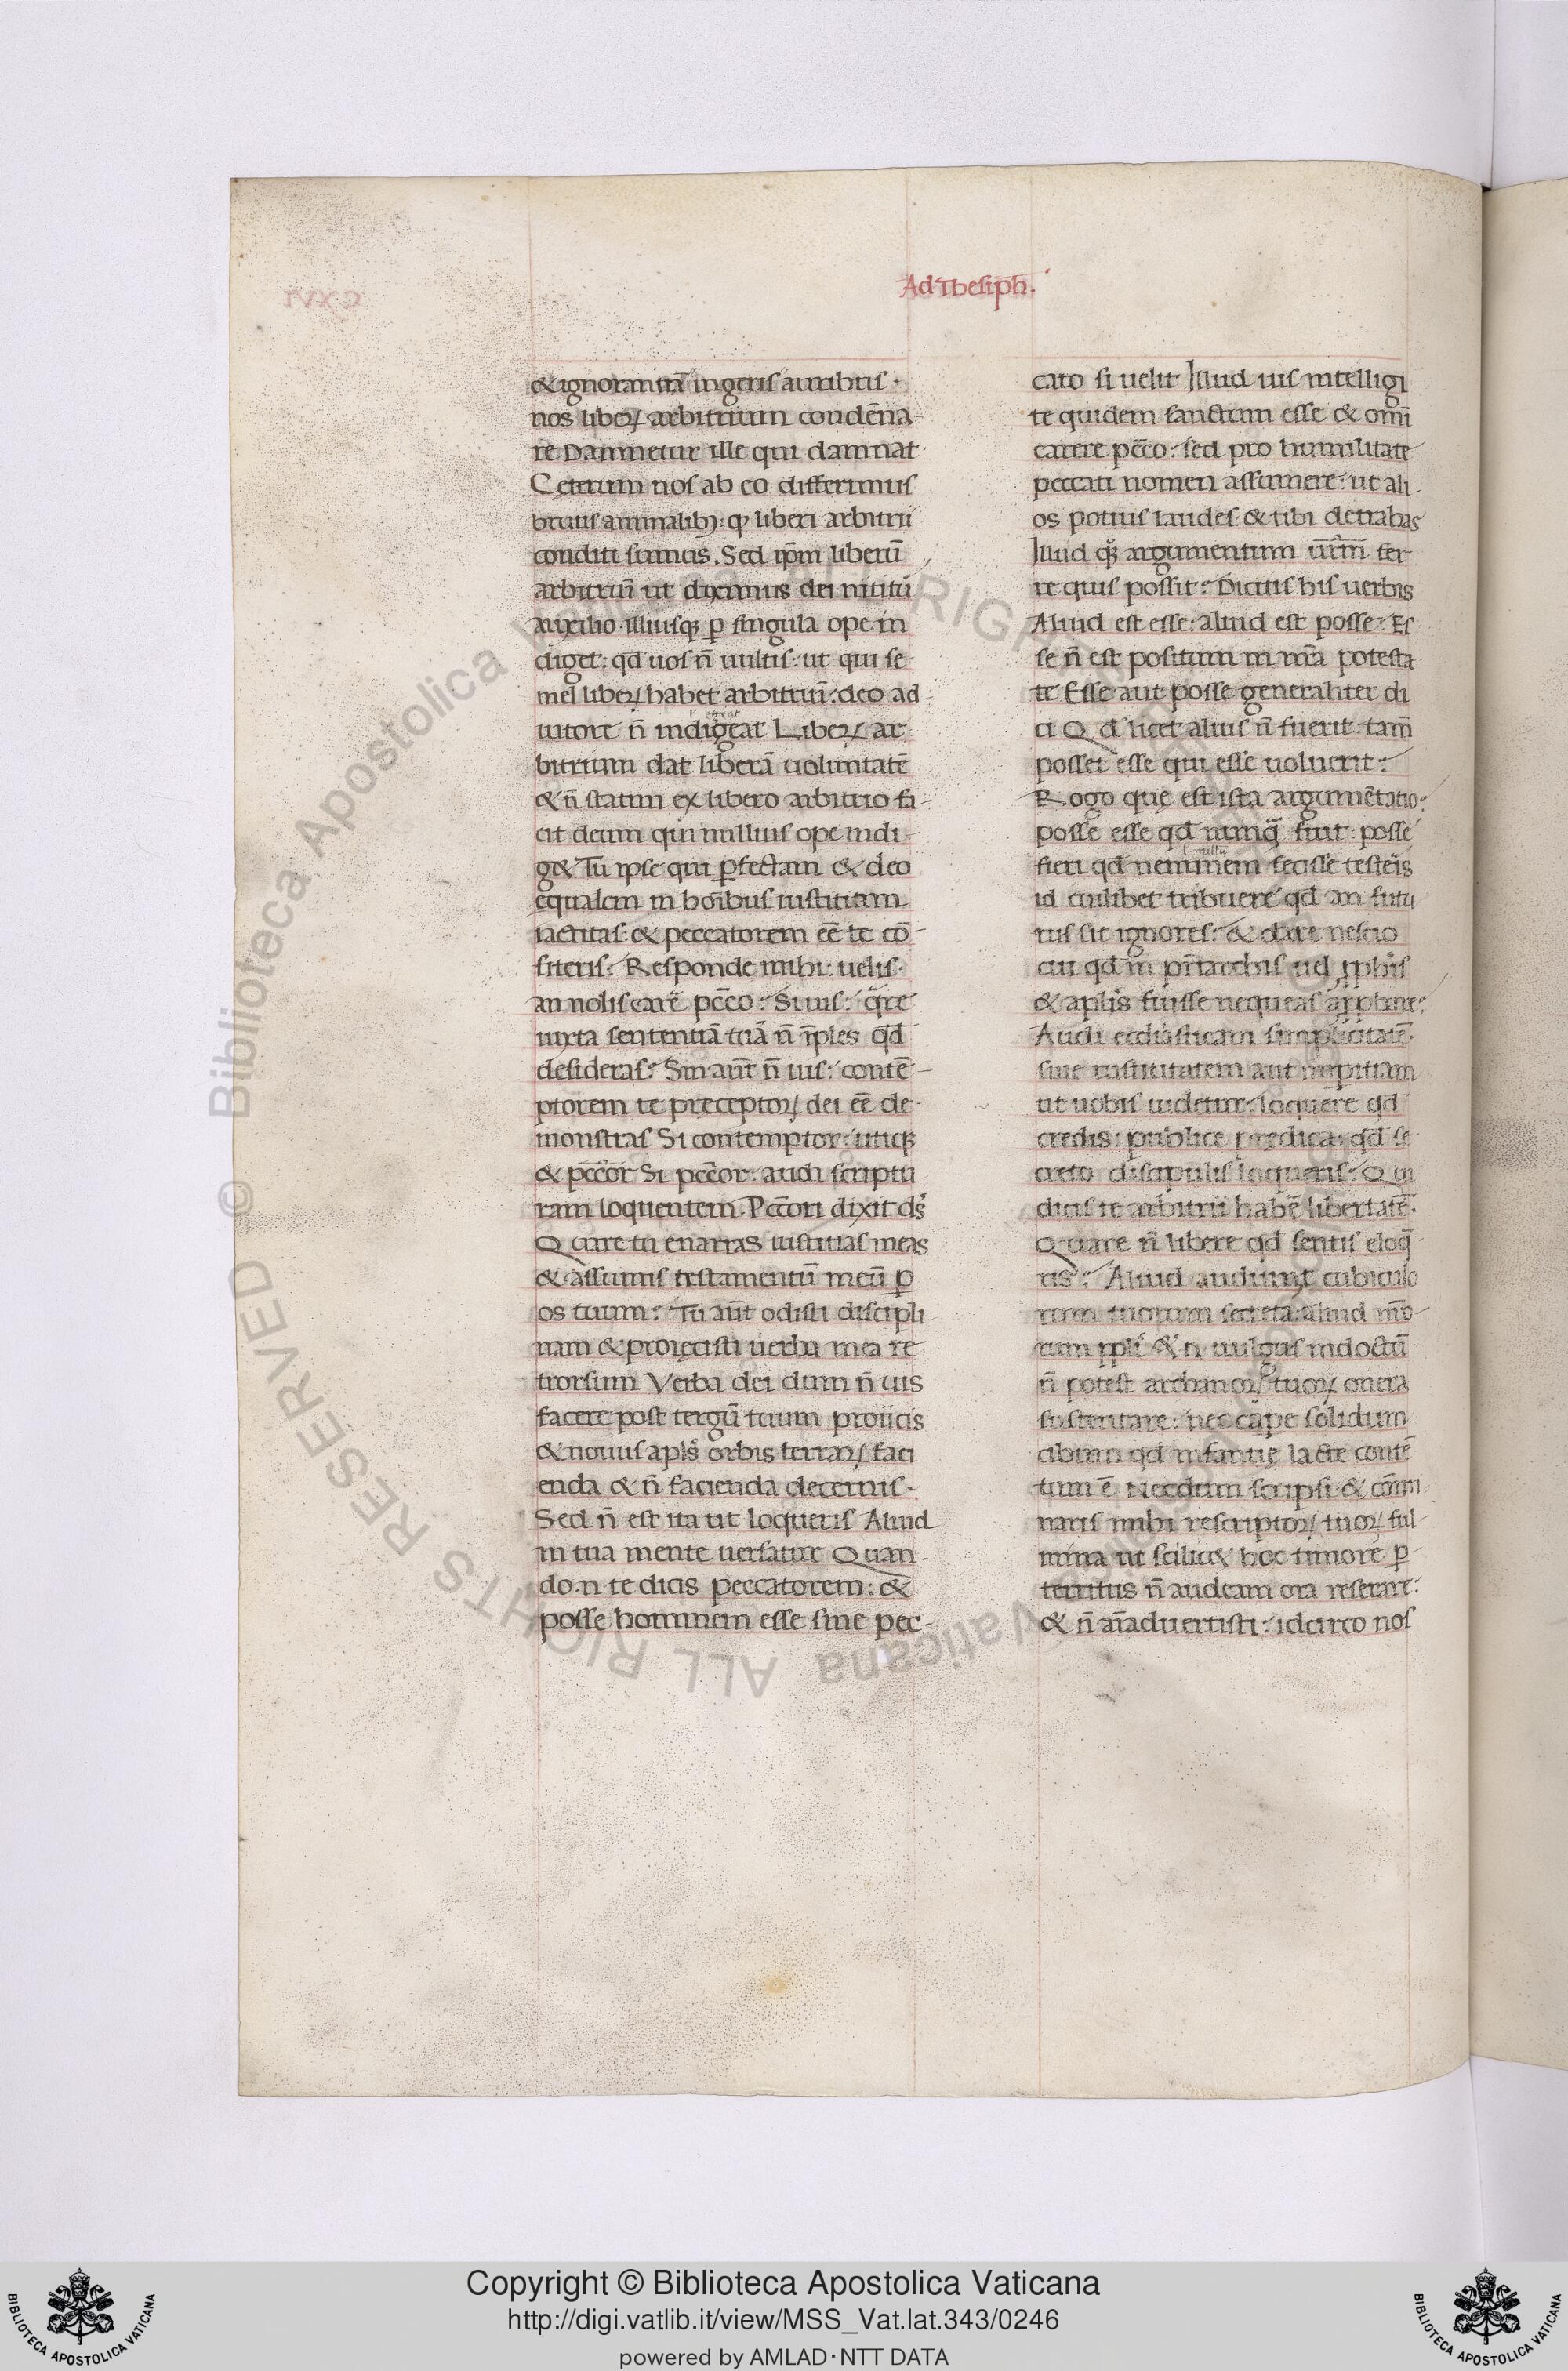 Ad Thesiph̄.
& ignorantiū ingeris auribus ·
nos liberꝝ arbitrium condēna-
re Damnetur ille qui damnat
Ceterum nos ab eo differimus
brutis animalibꝫ: ꝙ liberi arbitrii
conditi sumus. Sed ip̄m liberū
arbitriū ut diximus dei nititū
auxilio · illiusqꝫ ꝑ singula ope in
diget: qd̄ uos n̄ uultis: ut qui se
mel liberꝝ habet arbitriū: deo ad-
iutore n̄ indigeat Liberꝝ ar
bitrium dat liberā uoluntatē
& n̄ statim ex libero arbitrio fa-
cit deum qui nullius ope indi-
g& Tu ipse qui ꝑfectam & deo
ęqualem in hoı̄bus iustitiam
iactitas: & peccatorem eē te cō-
fiteris: Responde mihi: uelis·
an nolis carē pc̄co: Si uis: q̄re
iuxta sententiā tuā n̄ īples qd̄
desideras? Sin aūt n̄ uis: contē-
ptorem te pręceptorꝝ dei eē de-
monstras Si contemptor: utiqꝫ
& pc̄cor Si pc̄cor: audi scriptu
ram loquentem. Pc̄cori dixit ds̄
Quare tu enarras iustitias meas
& assumis testamentū meū ꝑ
os tuum: Tu aūt odisti discipli
nam & proięcisti uerba mea re
trorsum Verba dei dum n̄ uis
facere post tergū tuum proiicis
& nouus apl̄s orbis terrarꝝ faci
enda & n̄ facienda decernis ·
Sed n̄ est ita ut loqueris Aliud
in tua mente uersatur Quan-
do · n · te dicis peccatorem: &
posse hominem esse sine pec-
cato si uelit Illud uis intelligi
te quidem sanctum esse & omı̄
carere pc̄co: sed pro humilitate
peccati nomen assumere: ut ali-
os potius laudes & tibi detrahas
Illud qꝫ argumentum ur̄m fer-
re quis possit: Dicitis his uerbis
Aliud est esse: aliud est posse: Es
se n̄ est positum in nr̄a potesta
te Esse aut posse generaliter di
ci Qd̄ licet alius n̄ fuerit: tam̄
posset esse qui esse uoluerit:
Rogo quę est ista argumētatio:
posse esse qd̄ nunq̄ fuit: posse
fieri qd̄ neminem fecisse testeris
id cuilibet tribuere qd̄ an futu
rus sit ignores: & dare nescio
cui qd̄ in pr̄iarchis uel ꝓphis
& aplis fuisse nequeas approbare:
Audi eccl̄iasticam simplicitatē
siue rusticitatem aut imꝑitiam
ut uobis uidetur: loquere qd̄
credis: publice prędica: qd̄ se
creto discipulis loqueris: Qui
dicis te arbitrii habē libertatē ·
Quare n̄ libere qd̄ sentis eloq̄
ris: Aliud audiunt cubiculo
rum tuorum secreta: aliud
ppl̄i & · n · uulgus indoctū
n̄ potest archanorꝝ tuorꝝ onera
sustentare: nec cāpe solidum
cibum qd̄ infantię lacte contē
tum ē Necdum scripsi & com̄i
naris mihi rescriptorꝝ tuorꝝ ful-
mina ut scilic& hoc timore ꝑ-
territus n̄ audeam ora reserare:
& n̄ aı̄aduertisti: idcirco nos
Copyright © Biblioteca Apostolica Vaticana
http://digi.vatlib.it/view/MSS_Vat.lat.343/0246
powered by AMLAD·NTT DATA